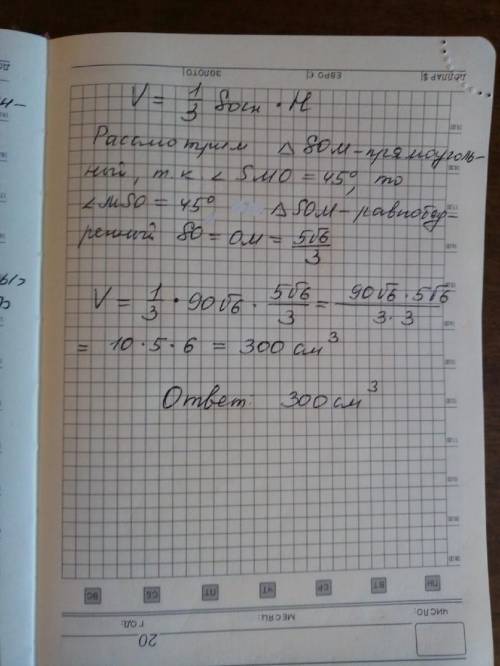 ДОЛЛАР $|
ЕВРО €|
ЗОЛОТО|
V = 1/3 Sосн · H
Рассмотрим △ SOM – прямоуголь-
ный, т.к ∠ SMO = 45°, то
∠MSO = 45°, △ SOM – равнобед-
ренный SO = OM = 5√6/3
V = 1/3 · 90√6 · 5√6/3 = 90√6 · 5√6/3 · 3
= 10 · 5 · 6 = 300 см³
Ответ: 300 см³
ПН
ВТ
СР
ЧТ
ПТ
СБ
ВС
ЧИСЛО:
МЕСЯЦ:
ГОД:
20